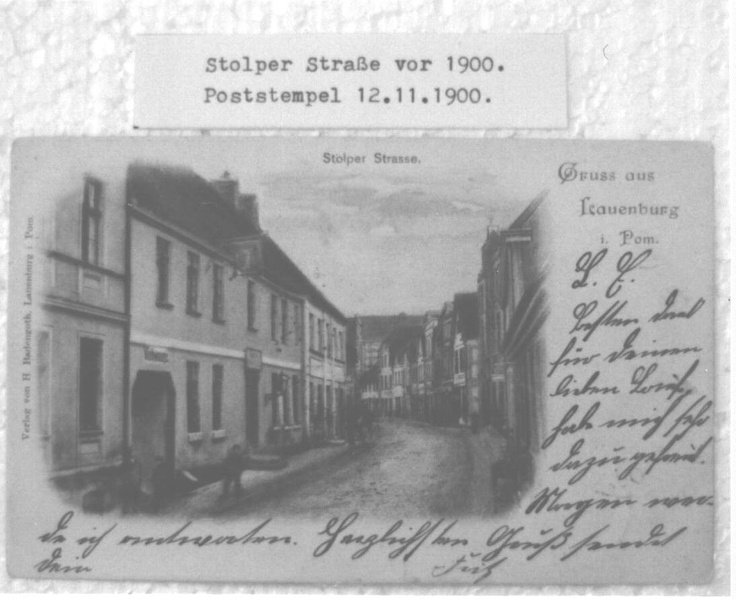 Stolper Straße vor 1900.
Poststempel 12.11.1900.
Stolper Strasse.
Gruss aus
Lauenburg
i. Pom.
Verlag von H. Badengoth, Lauenburg i. Pom.
L. E.
Besten Dank
für Deinen
lieben Brief,
habe mich sehr
dazu gefreut.
Morgen wer-
de ich antworten. Herzlichsten Gruß sendet
Dein Fritz